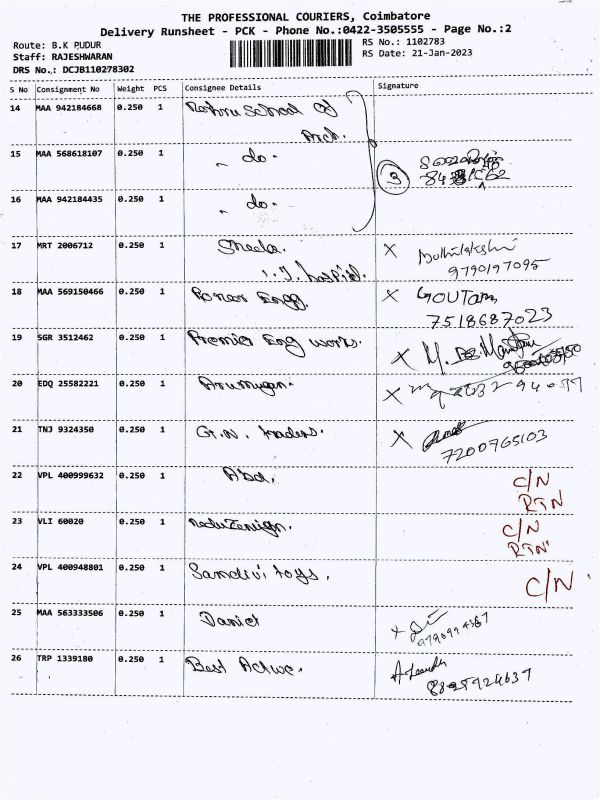 THE PROFESSIONAL COURIERS, Coimbatore
Delivery Runsheet - PCK - Phone No.:0422-3505555 - Page No.:2
Route: B.K PUDUR
RS No.: 1102783
Staff: RAJESHWARAN
RS Date: 21-Jan-2023
DRS No.: DCJB110278302
S No Consignment No Weight PCS Consignee Details Signature
14 MAA 942184668 0.250 1 School of
Arch.
15 MAA 568618107 0.250 1 " do. 3
16 MAA 942184435 0.250 1 " do.
17 MRT 2006712 0.250 1 Sheela. X
hospital. 9790197095
18 MAA 569150466 0.250 1 Engg. X GOUTAM
7518687023
19 SGR 3512462 0.250 1 Premier Eng works. X M.
20 EDQ 25582221 0.250 1 Arumugan. X
21 TNJ 9324350 0.250 1 G.N. traders. X
7200765103
22 VPL 400999632 0.250 1 C/N
RTN
23 VLI 60020 0.250 1 C/N
RTN
24 VPL 400948801 0.250 1 Sandivi toys. C/N
25 MAA 563333506 0.250 1 Daniel X
26 TRP 1339180 0.250 1 Best